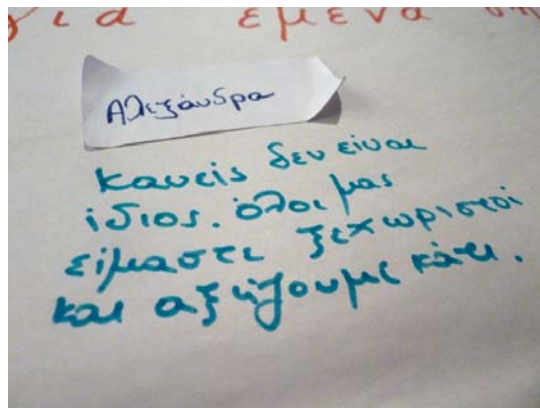 για εμένα
Αλεξάνδρα
κανείς δεν είναι
ίδιος. όλοι μας
είμαστε ξεχωριστοί
και αξίζουμε κάτι.